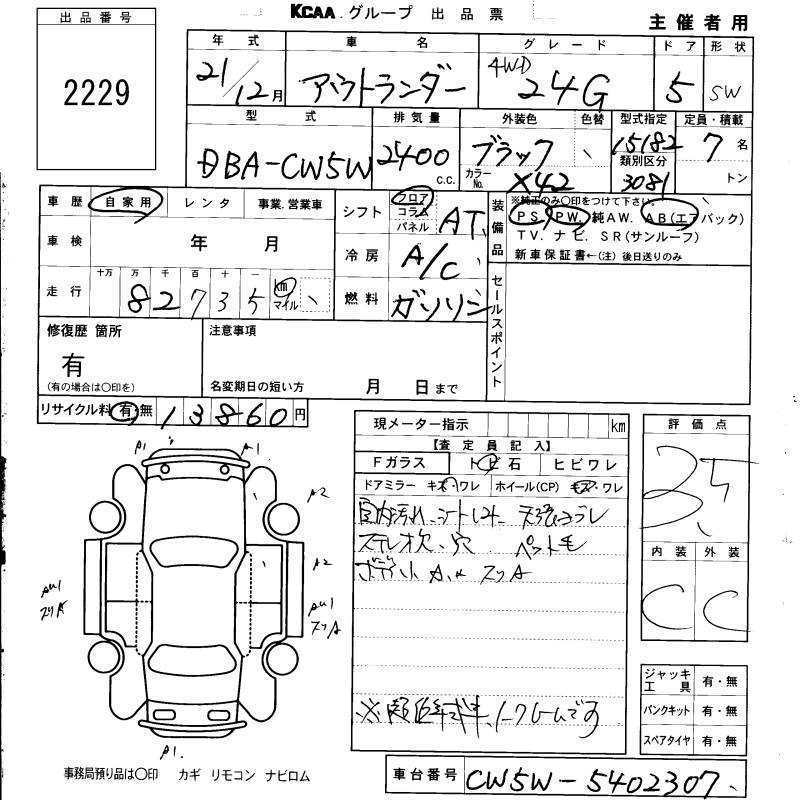 KCAA グループ 出品票
主催者用
出品番号
2229
年式 車名 グレード ドア 形状
21/12月 アウトランダー 4WD 24G 5 SW
型式 排気量 外装色 色替 型式指定 定員・積載
DBA-CW5W 2400 c.c. ブラック 15182 7名
カラーNo. X42 類別区分 3081 トン
車歴 自家用 レンタ 事業.営業車
シフト フロア コラム パネル AT
装備品 ※純正のみ〇印をつけて下さい。
PS. PW. 純AW. AB(エアバック)
TV. ナビ. SR(サンルーフ)
新車保証書←(注)後日送りのみ
車検 年 月
冷房 A/C
走行 十万 万 千 百 十 一
82735 km マイル
燃料 ガソリン
セールスポイント
修復歴 箇所
有
(有の場合は〇印を)
注意事項
名変期日の短い方 月 日まで
リサイクル料 有・無 13860円
現メーター指示 km
【査定員記入】
Fガラス トビ石 ヒビワレ
ドアミラー キズ・ワレ ホイール(CP) キズ・ワレ
室内汚れ、シート
ステレオ欠、穴 ペット毛
ボディ小A.U スリA
※ ノークレームです
評価点
3.5
内装 外装
C C
ジャッキ工具 有・無
パンクキット 有・無
スペアタイヤ 有・無
A1 A1
A2
A2
AU1 スリA
AU1 スリA
A1.
事務局預り品は〇印 カギ リモコン ナビロム
車台番号 CW5W-5402307